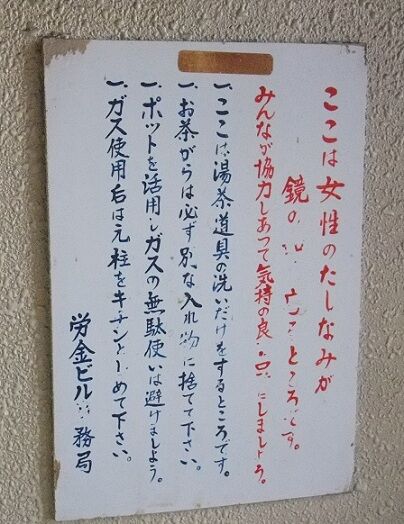 ここは女性のたしなみが
鏡の ところです。
みんなが協力しあって気持の良い にしましょう。
一、ここは湯茶道具の洗いだけをするところです。
一、お茶がらは必ず別な入れ物に捨てて下さい。
一、ポットを活用しガスの無駄使いは避けましよう。
一、ガス使用后は元栓をキチンとしめて下さい。
労金ビル 務局